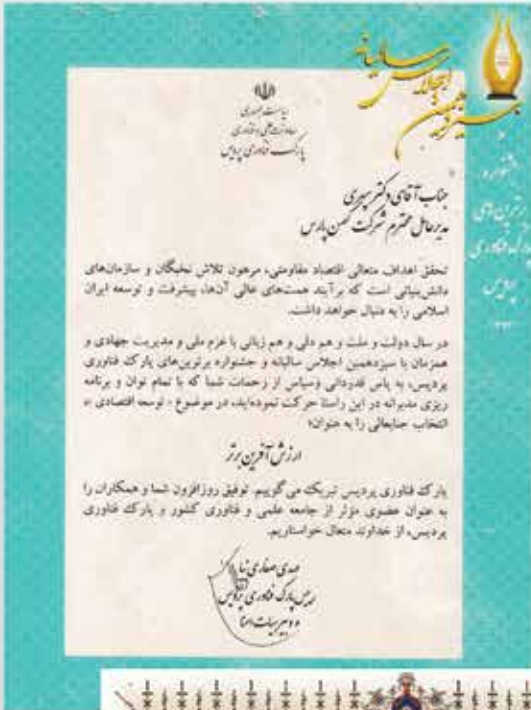 سیزدهمین
اجلاس
سالیانه
و
جشنواره
برترین‌های
پارک فناوری
پردیس
ریاست جمهوری
معاونت علمی و فناوری
پارک فناوری پردیس
جناب آقای دکتر سپهری
مدیرعامل محترم شرکت کهن پارس
تحقق اهداف متعالی اقتصاد مقاومتی، مرهون تلاش نخبگان و سازمان‌های
دانش‌بنیانی است که برآیند همت‌های عالی آن‌ها، پیشرفت و توسعه ایران
اسلامی را به دنبال خواهد داشت.
در سال دولت و ملت و هم دلی و هم زبانی با عزم ملی و مدیریت جهادی و
همزمان با سیزدهمین اجلاس سالیانه و جشنواره برترین‌های پارک فناوری
پردیس، به پاس قدردانی وسپاس از زحمات شما که با تمام توان و برنامه
ریزی مدبرانه در این راستا حرکت نموده‌اید، در موضوع « توسعه اقتصادی »،
انتخاب جنابعالی را به عنوان؛
ارزش آفرین برتر
پارک فناوری پردیس تبریک می گوییم. توفیق روزافزون شما و همکاران را
به عنوان عضوی مؤثر از جامعه علمی و فناوری کشور و پارک فناوری
پردیس، از خداوند متعال خواستاریم.
مهدی صفاری نیا
رییس پارک فناوری پردیس
و دبیر هیات امنا